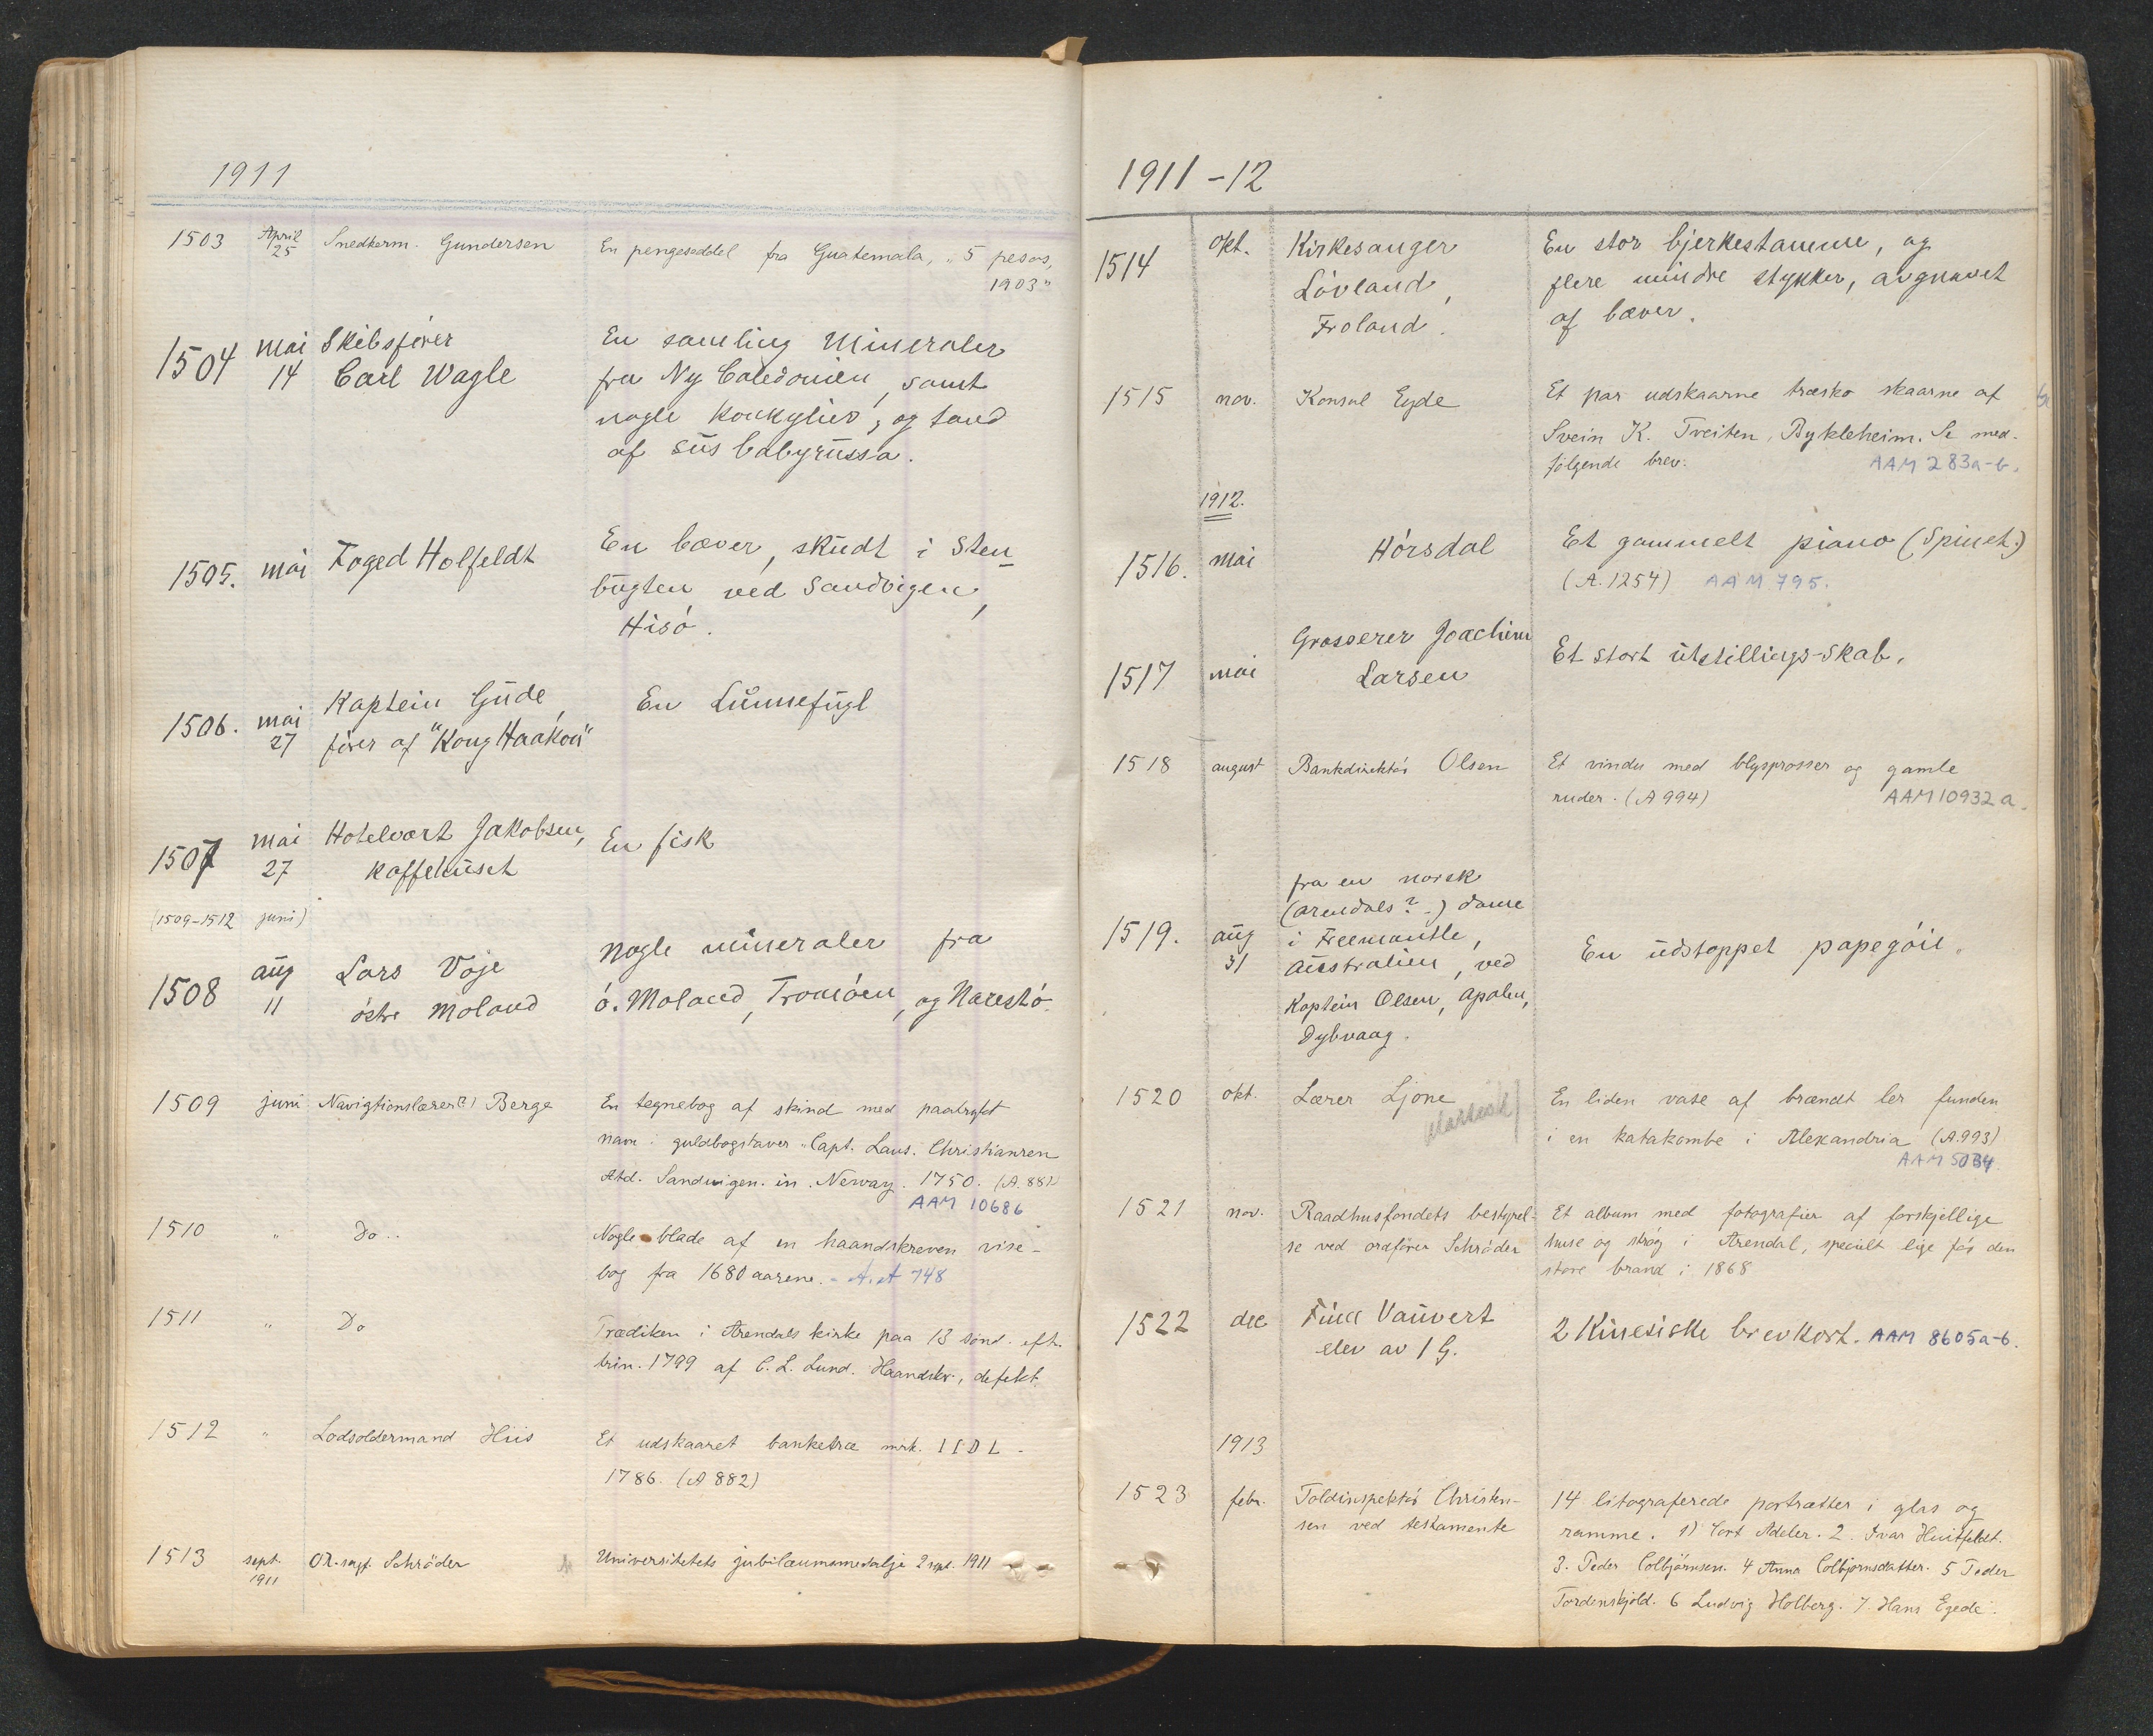 1911
1503 April 25 Snedkerm. Gundersen En pengeseddel fra Guatemala, „5 pesos,
1903"
1504 mai 14 Skibsfører En samling Mineraler
Carl Wagle fra Ny Caledonien, samt
nogle Konkylier, og tand
af sus babyrussa.
1505. mai Foged Holfeldt En bæver, skudt i Sten-
bugten ved Sandvigen,
Hisø.
1506. mai 27 Kaptein Gude, En Lunnefugl
fører af "Kong Haakon"
1507 mai 27 Hotelvært Jakobsen, En fisk
Kaffehuset
(1509-1512 juni)
1508 aug 11 Lars Voje Nogle mineraler fra
østre Moland ø. Moland, Tromøen, og Narestø.
1509 juni Navigtionslærer(?) Berge En tegnebog af skind med paatrykt
navn i guldbogstaver „Capt. Laus. Christiansen
Atd. Sandvigen. in. Neway. 1750. (A. 881)
AAM 10686
1510 " Do.. Nogle blade af en haandskreven vise-
bog fra 1680 aarene. - A. A 748
1511 " Do Prædiken i Arendals kirke paa 13 sønd. eft.
trin. 1799 af C. L. Lund. Haandskr., defekt.
1512 " Lodsoldermand Hiis Et udskaaret banketræ mrk. I I D L -
1786. (A 882)
1513 sept. 1911 OR.sagf. Schrøder Universitetets jubilæumsmedalje 2 sept. 1911
1911-12
1514 okt. Kirkesanger En stor bjerkestamme, og
Løvland, flere mindre stykker, avgnavet
Froland. af bæver.
1515 nov. Konsul Eyde Et par udskaarne træsko skaarne af
Svein K. Tveiten, Bykleheim. Se med-
følgende brev. AAM 283a-b.
1912.
1516. mai Hørsdal Et gammelt piano (Spinet.)
(A. 1254) AAM 795.
1517 mai Grosserer Joachim Et stort utstillings-skab.
Larsen
1518 august Bankdirektør Olsen Et vindu med blysprosser og gamle
ruder. (A 994) AAM 10932 a.
1519. aug 31 fra en norsk
(arendals?-) dame
i Freemantle, En udstoppet papegøie.
Australien, ved
Kaptein Olsen, Apalen,
Dybvaag.
1520 okt. Lærer Ljone En liden vase af brændt ler funden
i en katakombe i Alexandria (A.993)
AAM 5034.
1521 nov. Raadhusfondets bestyrel- Et album med fotografier af forskjellige
se ved ordfører Schrøder huse og strøg i Arendal, specielt lige før den
store brand i 1868
1522 dec Finn Vauvert 2 Kinesiske brevkort. AAM 8605a-b.
elev av 1 G.
1913
1523 febr. Toldinspektør Christen- 14 litograferede portrætter i glas og
sen ved testamente ramme. 1) Cort Adeler. 2. Ivar Huitfeldt.
3. Peder Colbjørnsen. 4 Anna Colbjørnsdatter. 5 Peder
Tordenskjold. 6 Ludvig Holberg. 7. Hans Egede.